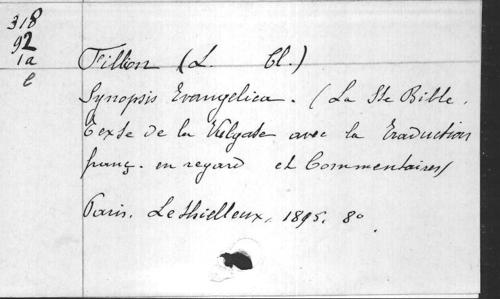 318
92
1a
e
Fillion (L. Cl.)
Synopsis Evangelica. (La Ste Bible.
Texte de la Vulgate avec la Traduction
franç. en regard et Commentaires)
Paris. Lethielleux, 1895. 8o